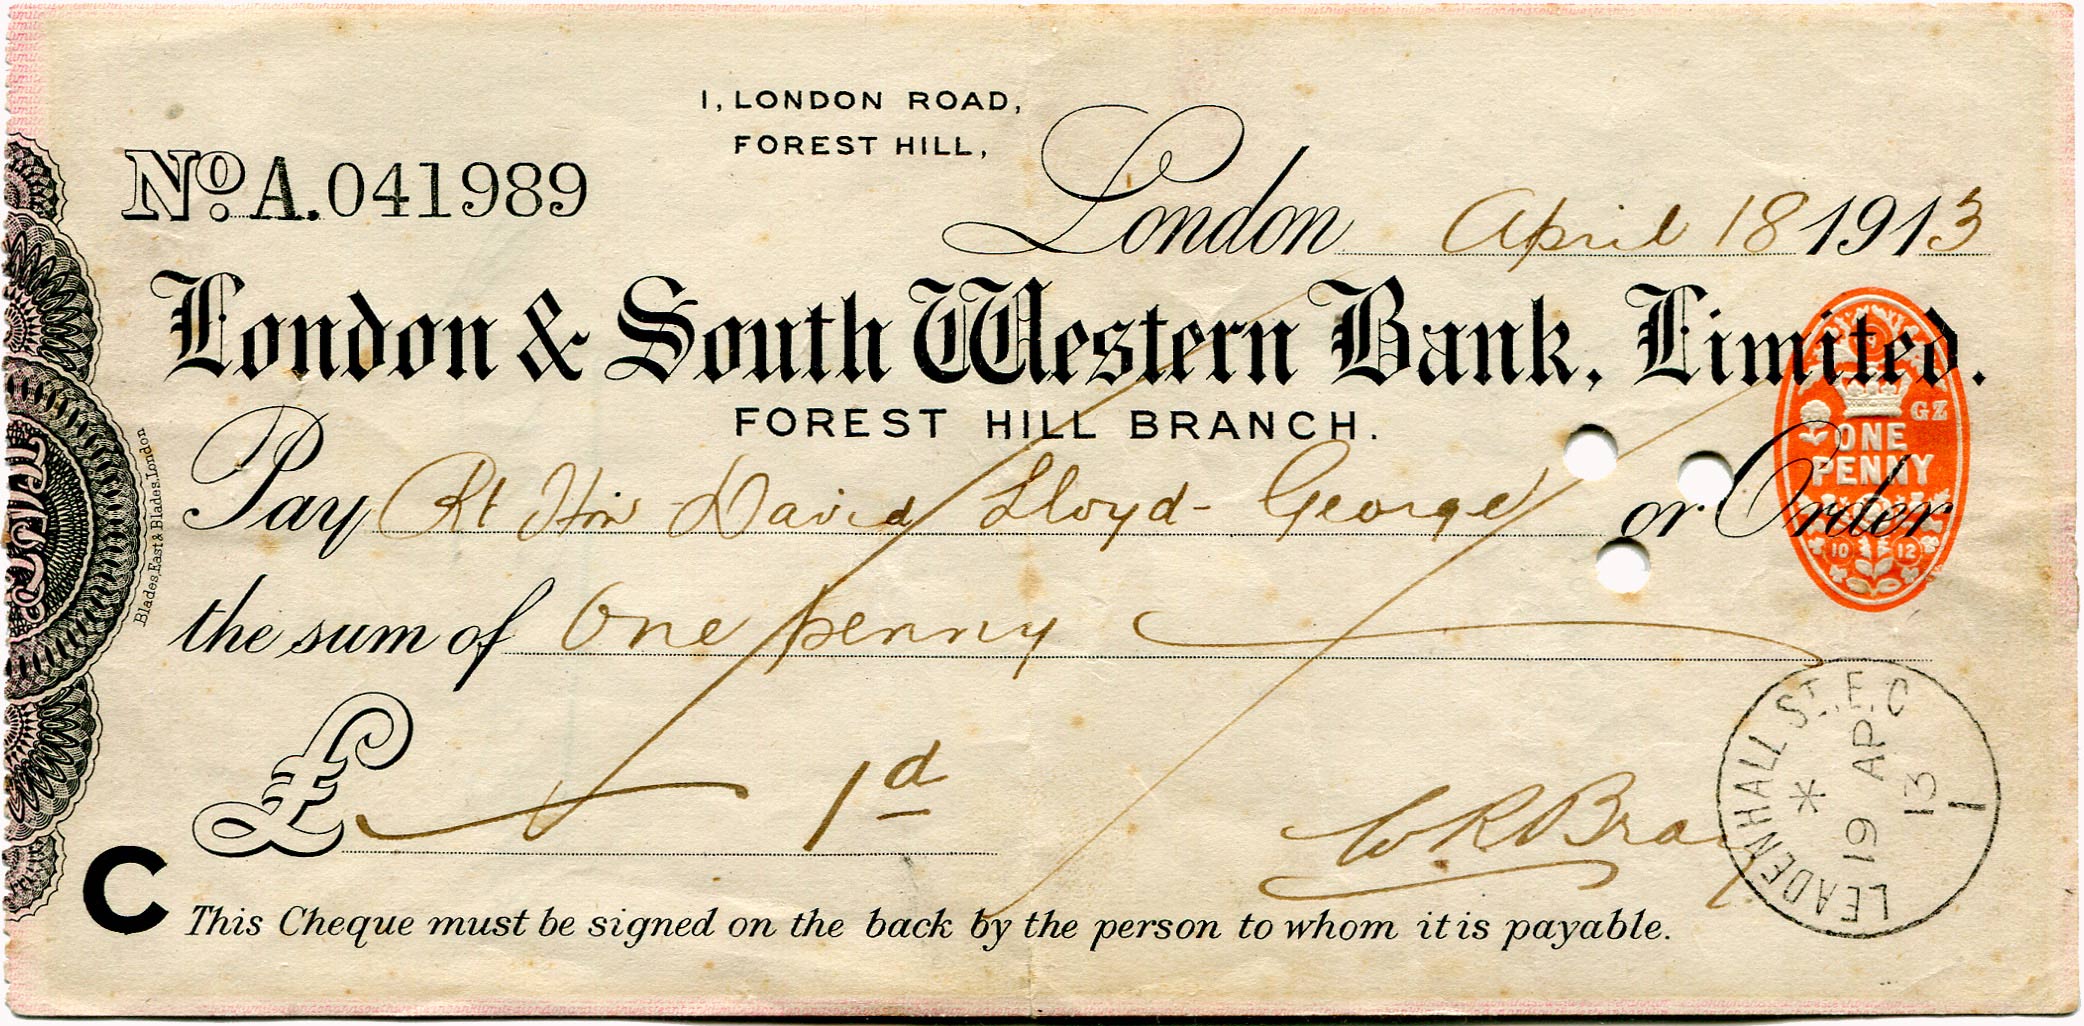 1, LONDON ROAD,
FOREST HILL,
No. A. 041989
London April 18 1913
London & South Western Bank, Limited.
FOREST HILL BRANCH.
GZ
ONE
PENNY
10 12
Pay Rt Hon David Lloyd-George or Order
the sum of One penny
£ 1d
W R Bray
LEADENHALL ST. E.C
19 AP
13
1
C This Cheque must be signed on the back by the person to whom it is payable.
Blades, East & Blades, London